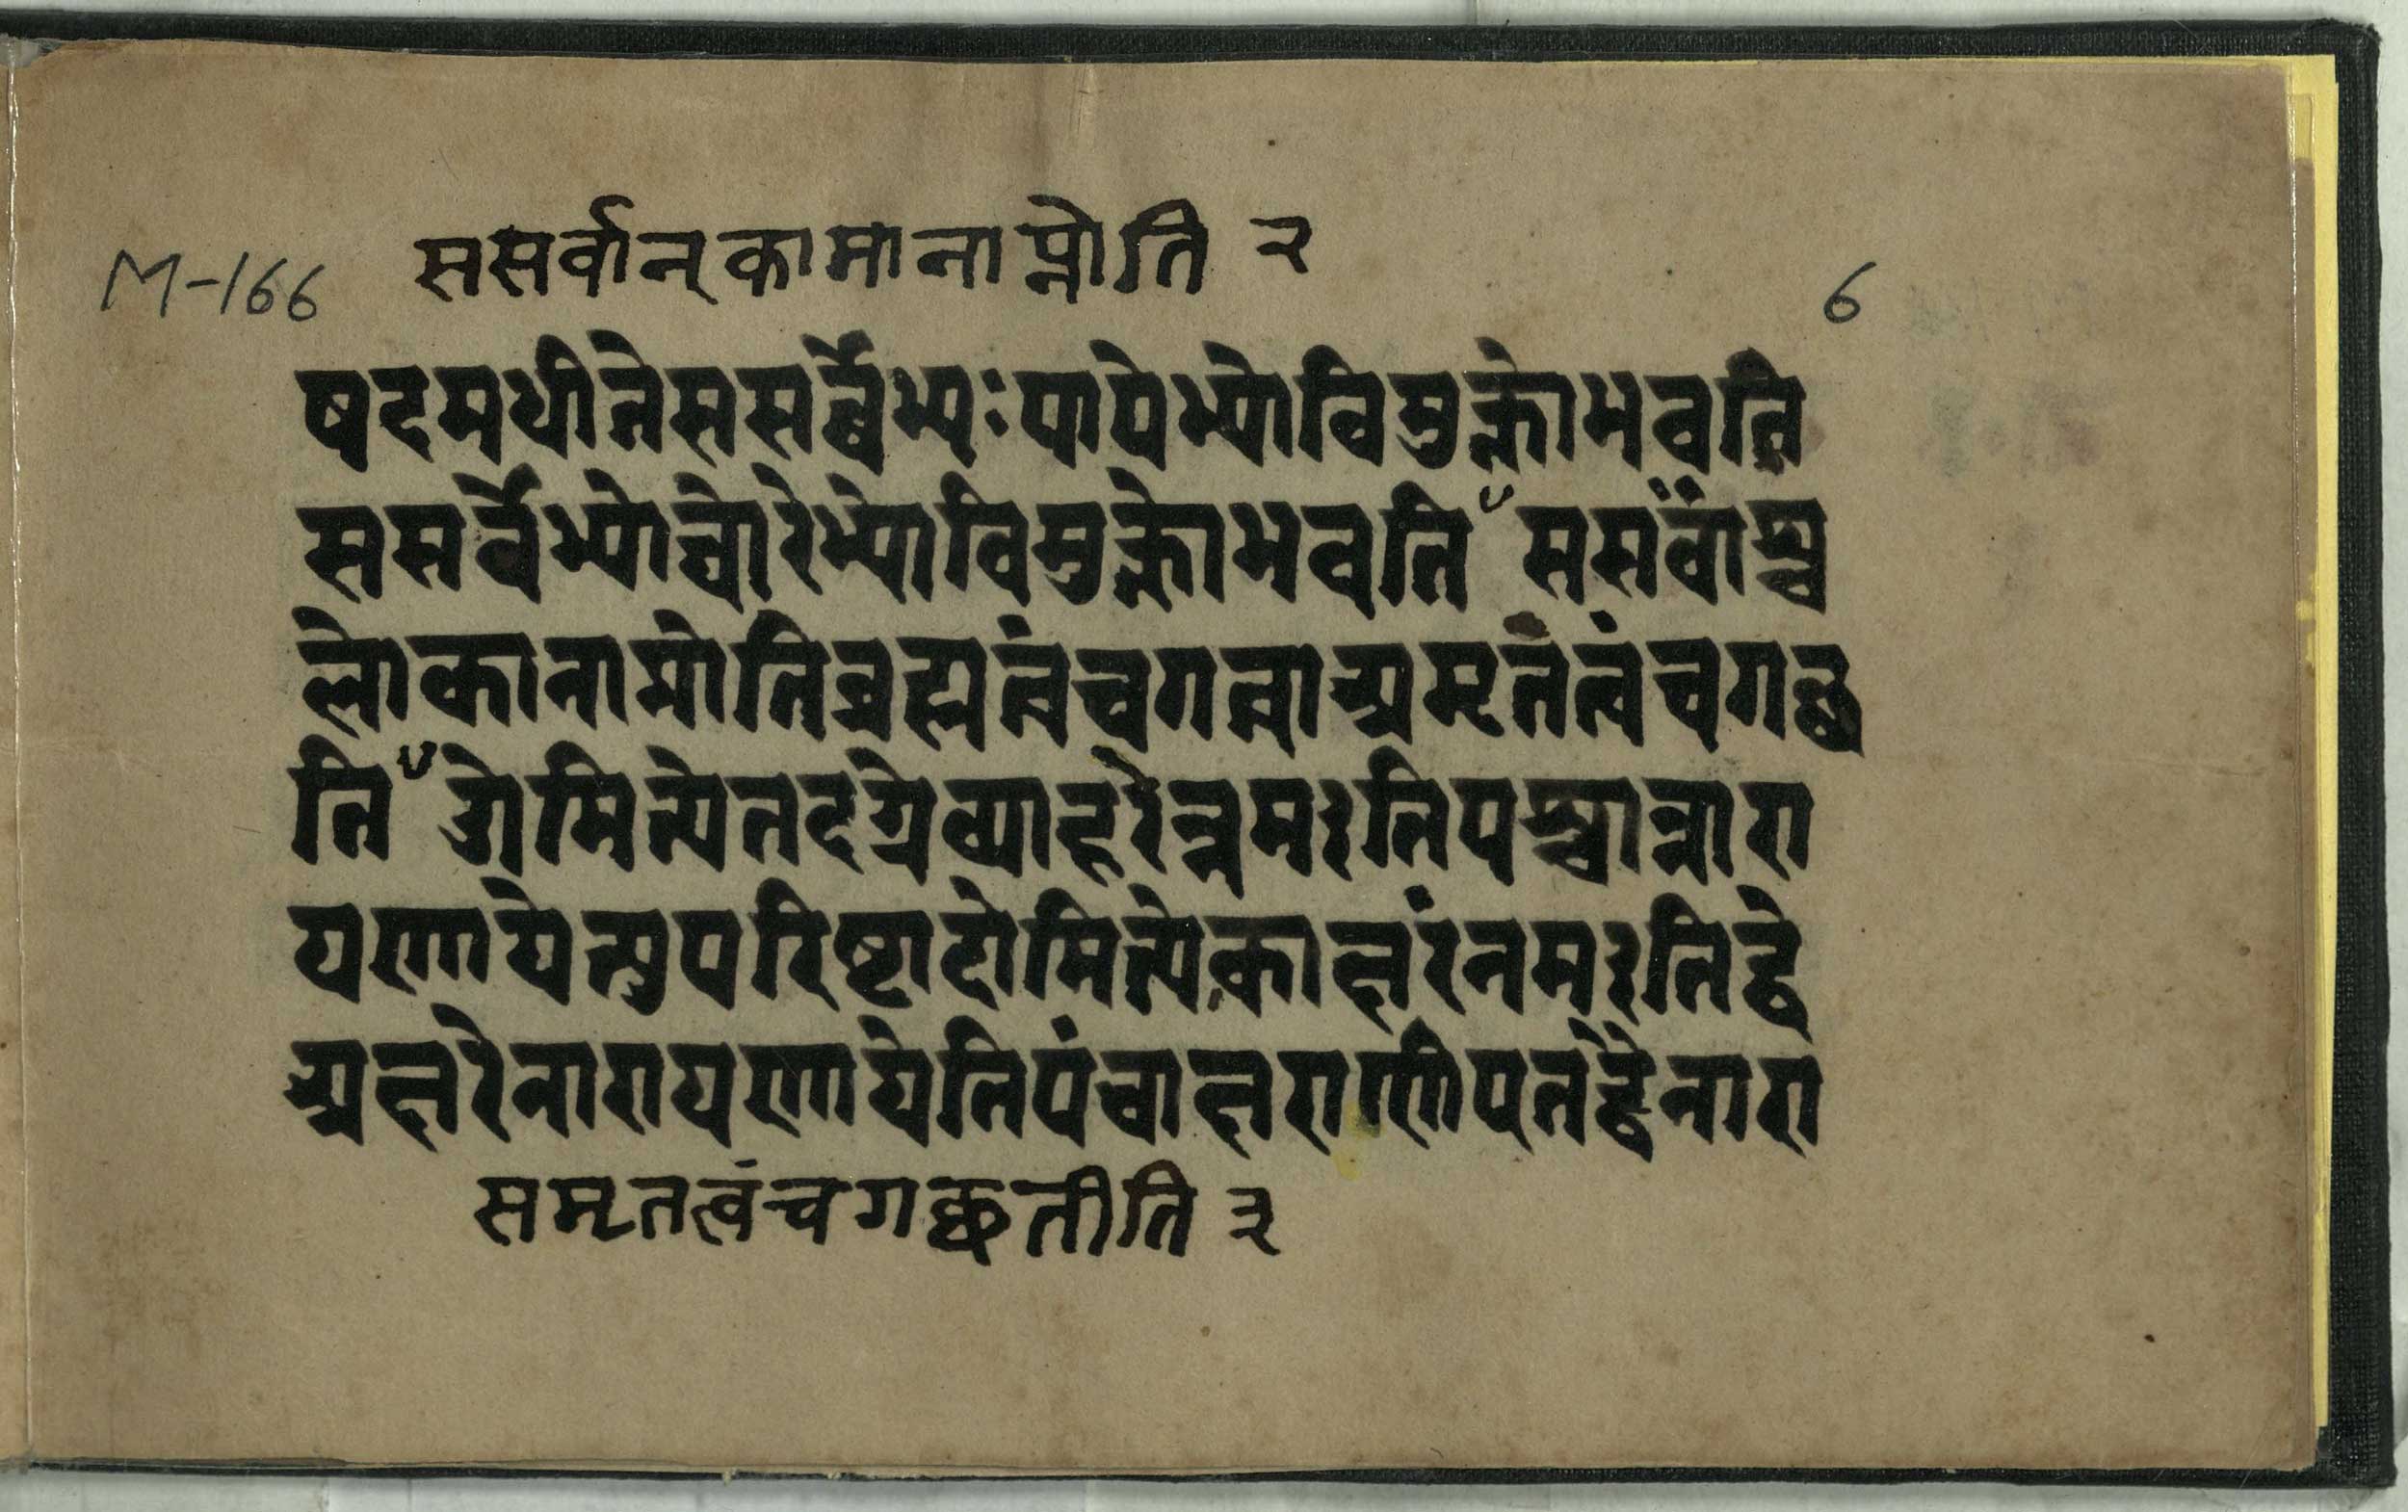 ससर्वान्कामानाप्नोति २
M-166
6
षदमधीतेससर्व्वेभ्यःपापेभ्योविमुक्तोभवति
ससर्वेभ्योच्चोरेभ्योविमुक्तोभवति ससर्वांश्च
लोकानाप्नोतिब्रह्मत्वंच्चगत्वाअमृतंत्वंच्चगच्छ
ति ओमित्येतदग्रेव्याहरेन्नमइतिपश्चान्नारा
यणायेत्युपरिष्टादोमित्येकाक्षरंनमइतिद्वे
अक्षरेनारायणायेतिपंचाक्षराणीएतद्वैनारा
समृतत्वंचगच्छतीति ३